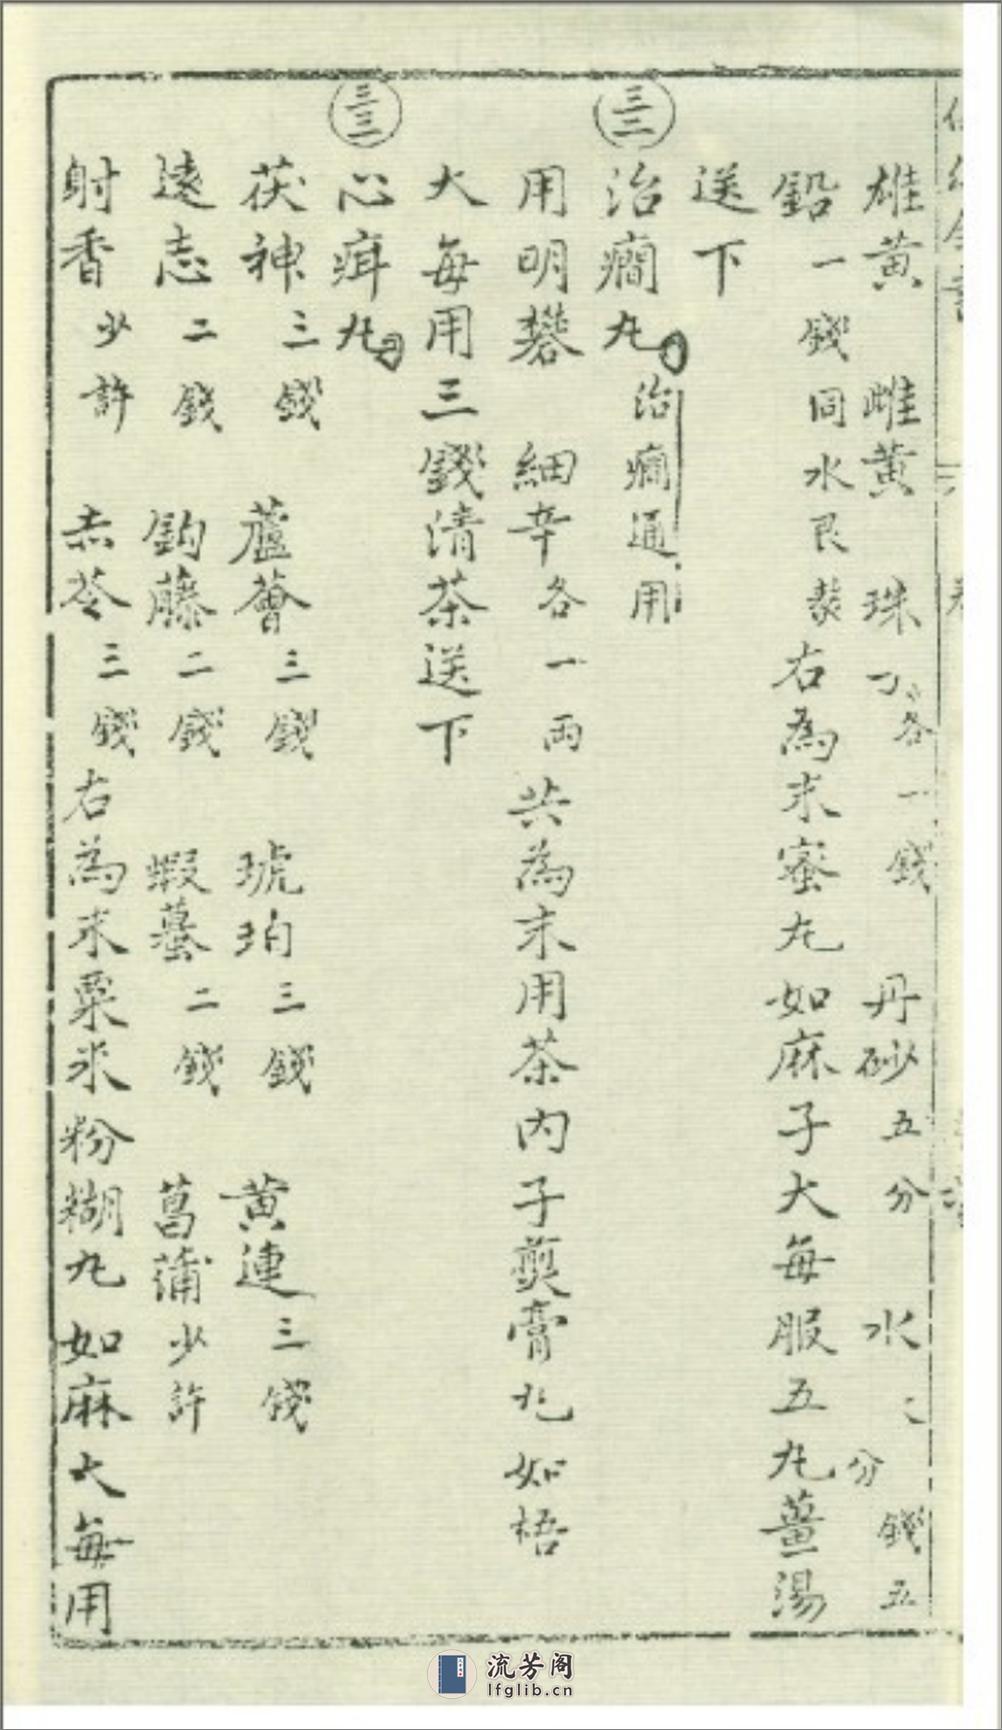 雄黄 雌黄 珠 各一錢 丹砂五分 水 錢五分
鉛一錢同水艮 右為末蜜丸如麻子大每服五丸薑湯
送下
三二
治癇丸 治癇通用
用明礬 細辛各一兩 共為末用茶內子煎膏丸如梧
大每用三錢清茶送下
三三
心疳丸
茯神三錢 蘆薈三錢 琥珀三錢 黄連三錢
遠志二錢 鈎藤二錢 蝦蟇二錢 菖蒲少許
射香少許 赤苓三錢 右為末粟米粉糊丸如麻大每用
流芳阁
lfglib.cn